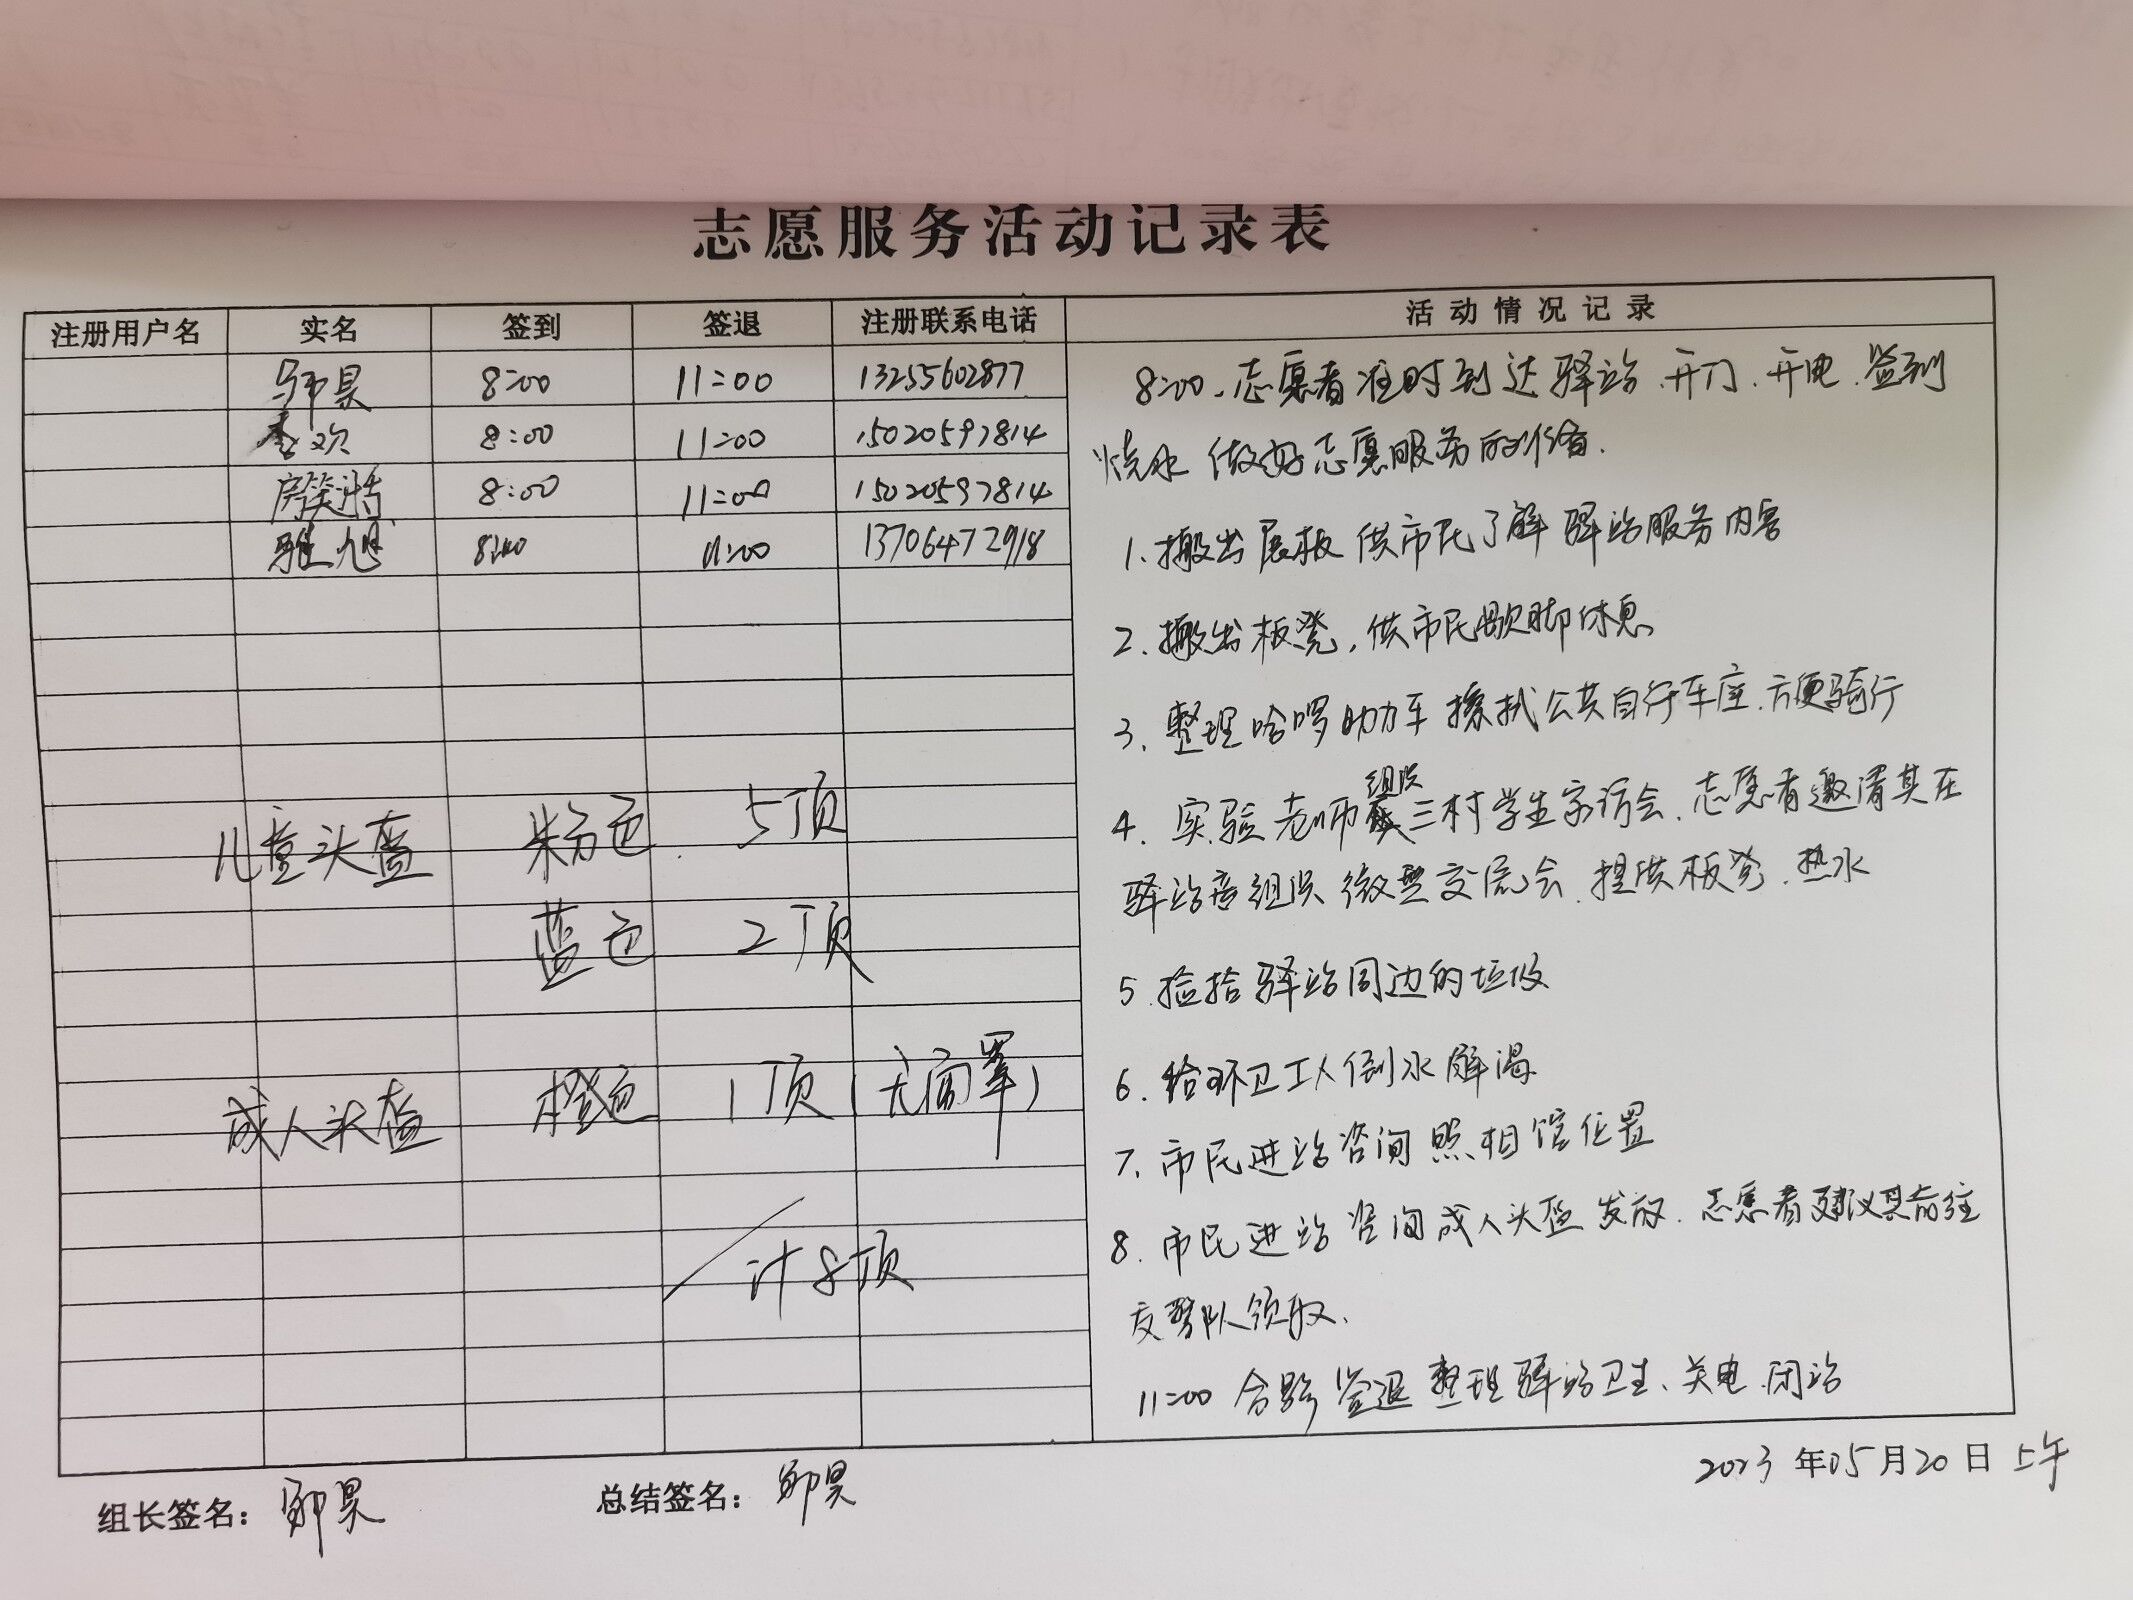 志愿服务活动记录表
注册用户名 实名 签到 签退 注册联系电话 活动情况记录
昊 8:00 11:00 13255602877
欢 8:00 11:00 15020597814
房笑浩 8:00 11:00 15020597814
旭 8:00 11:00 13706472918
儿童头盔 粉色 5顶
蓝色 2顶
成人头盔 橙色 1顶(无面罩)
计8顶
8:00、志愿者准时到达驿站、开门、开电、签到
烧水 做好志愿服务的准备.
1、搬出展板 供市民了解驿站服务内容
2、搬出板凳,供市民歇脚休息
3、整理哈啰助力车 擦拭公共自行车座、方便骑行
组织
4、实验老师三村学生家访会、志愿者邀请其在
驿站旁组织微型交流会、提供板凳、热水
5、捡拾驿站周边的垃圾
6、给环卫工人倒水解渴
7、市民进站咨询照相馆位置
8、市民进站咨询成人头盔发放、志愿者建议其前往
交警队领取、
11:00 合影 签退 整理驿站卫生、关电、闭站
2023年05月20日上午
组长签名: 昊 总结签名: 昊